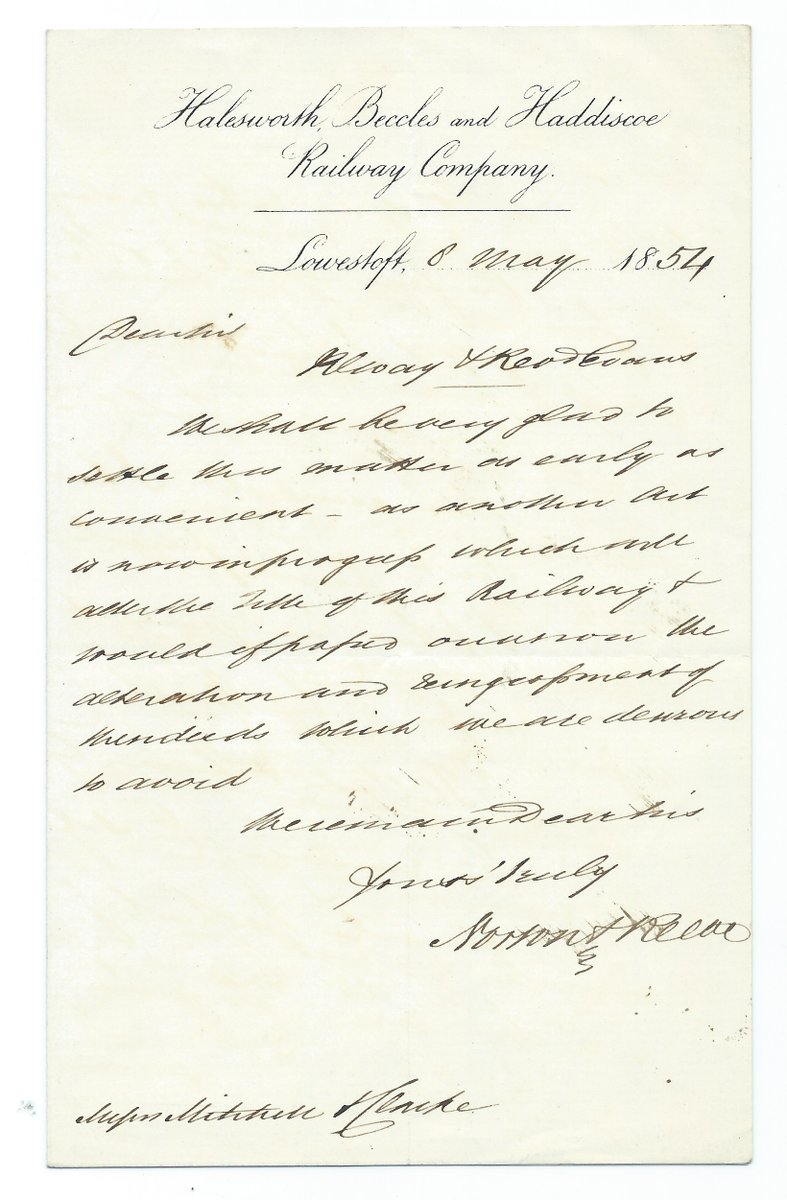 Halesworth, Beccles and Haddiscoe
Railway Company.
Lowestoft, 8 May 1854
Dear Sirs
Rlway & Revd Evans
We shall be very glad to
settle this matter as early as
convenient – as another Act
is now in progress which will
alter the Title of this Railway &
would if passed occasion the
alteration and reingrossment of
the deeds which we are desirous
to avoid
We remain Dear Sirs
Yours Truly
Norton & Reeve
Messrs Mitchell & Clarke